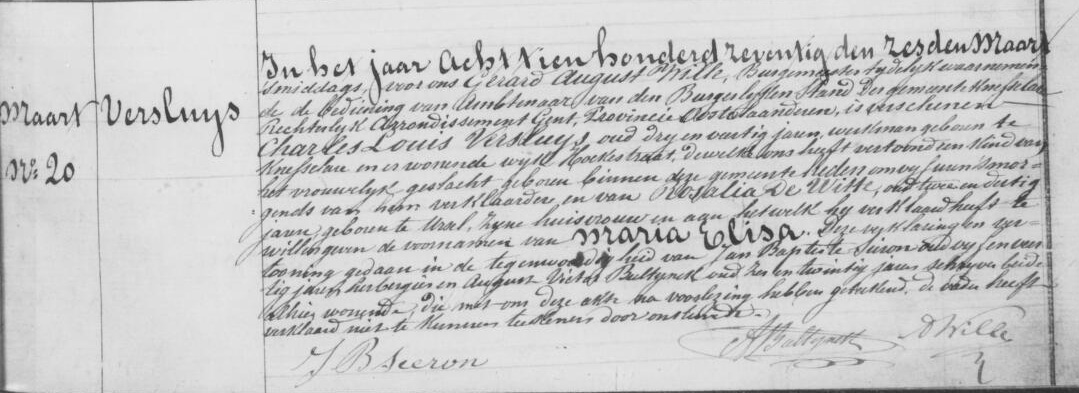 Maart Versluys
Nr. 20
In het jaar acht tien honderd zeventig den zesden Maart
smiddags, voor ons Gerard August Wille, Burgemeester tydelyk waarnemen
de de bediening van Ambtenaar van den Burgerlyken Stand der gemeente Knesselare
rechterlyk Arrondissement Gent, Provincie Oostvlaanderen, is verschenen
Charles Louis Versluys, oud dry en veertig jaren, werkman geboren te
Knesselare en er wonende wyk Hoekestraat, dewelke ons heeft vertoond een kind van
het vrouwelyk geslacht geboren binnen deze gemeente heden om vyf uren smor-
gends van hem verklaarder, en van Rosalia De Witte, oud twee en dertig
jaren, geboren te Ursel, zyne huisvrouw en aan hetwelk hy verklaard heeft te
willen geven de voornamen van Maria Elisa. Deze verklaring en ver-
tooning gedaan in de tegenwoordigheid van Jan Baptiste Sieron oud vyf en veer
tig jaren herbergier en August Victor Bultynck oud zes en twintig jaren schryver beide
alhier wonende, die met ons deze akte na voorlezing hebben geteekend. de vader heeft
verklaard niet te kunnen teekenen door onkunde.
J B Sieron
A Bultynck
A Wille